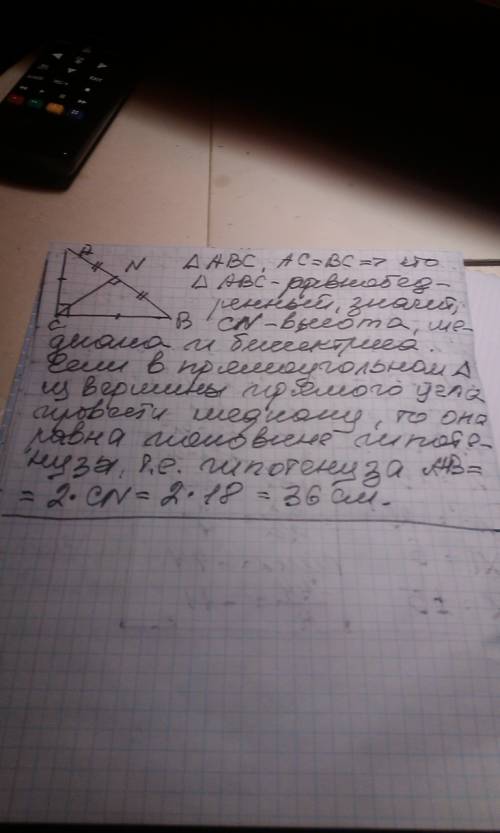 A
N
C
B
△ ABC, AC=BC => что
△ ABC - равнобед-
ренный, значит,
CN - высота, ме-
диана и биссектриса.
Если в прямоугольном △
из вершины прямого угла
провести медиану, то она
равна половине гипоте-
нузы, т.е. гипотенуза AB=
= 2·CN = 2·18 = 36 см.